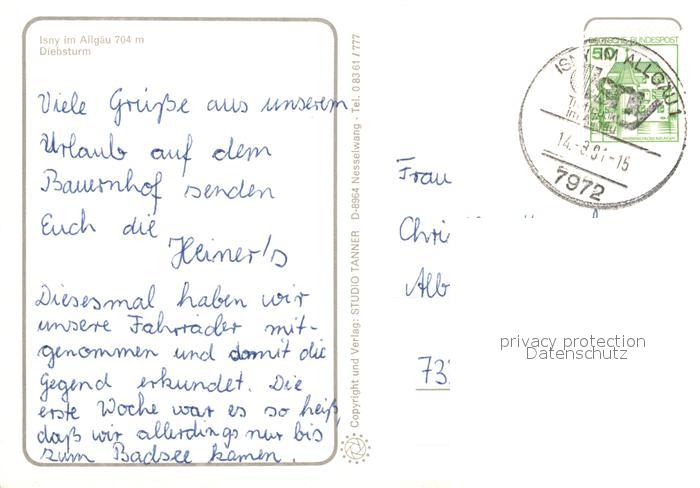 Isny im Allgäu 704 m
Diebsturm
Viele Grüße aus unserem
Urlaub auf dem
Bauernhof senden
Euch die
Heiner's
Diesesmal haben wir
unsere Fahrräder mit-
genommen und damit die
Gegend erkundet. Die
erste Woche war es so heiß,
daß wir allerdings nur bis
zum Badsee kamen.
Copyright und Verlag: STUDIO TANNER D-8964 Nesselwang - Tel. 0 83 61 / 777
DEUTSCHE BUNDESPOST
50
ISNY IM ALLGÄU 1
14.-8.81-15
7972
Frau
Chri
Alb
73
privacy protection
Datenschutz